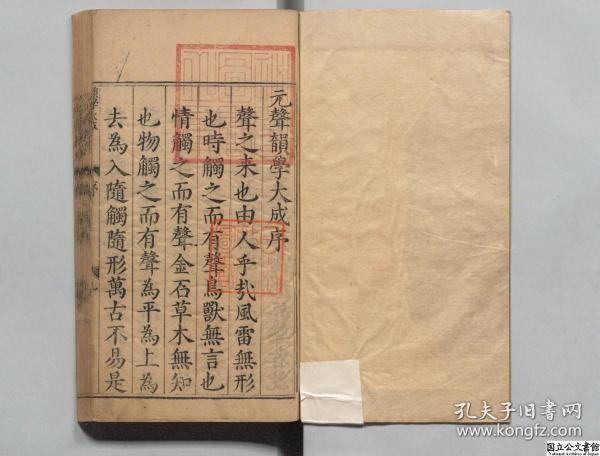 元聲韻學大成序
聲之来也由人乎㢤風雷無形
也時觸之而有聲鳥獸無言也
情觸之而有聲金石草木無知
也物觸之而有聲為平為上為
去為入隨觸隨形萬古不易是
序
孔夫子旧書网
www.kongfz.com
国立公文書館
National Archives of Japan